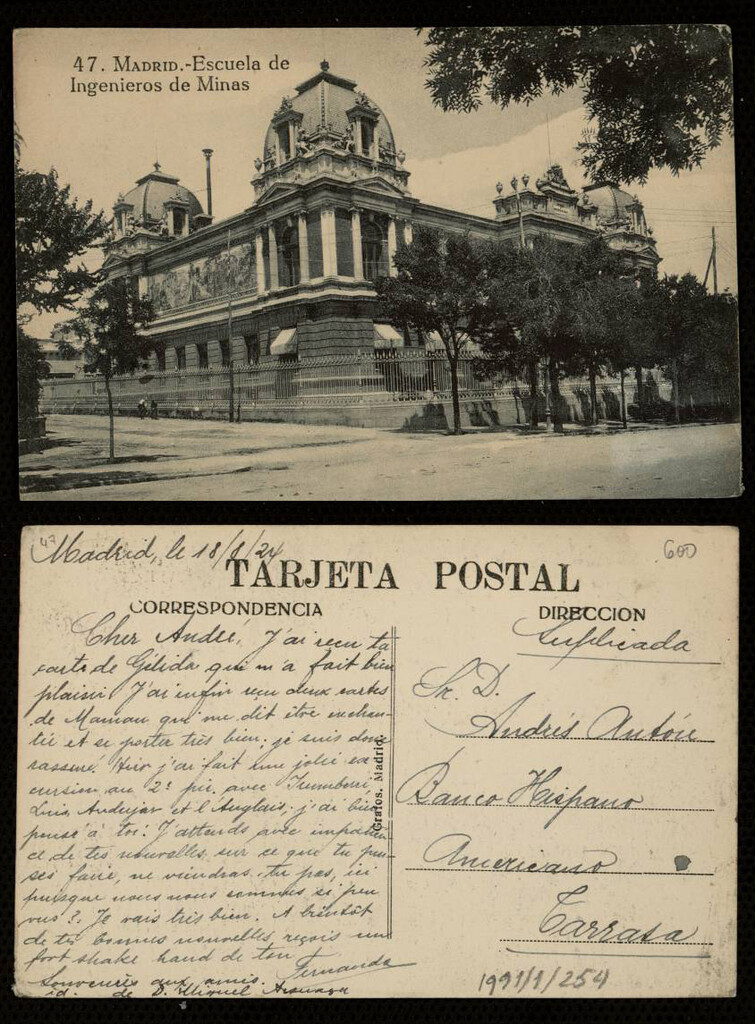 47. MADRID.-Escuela de
Ingenieros de Minas
47
Madrid, le 18/8/24
600
TARJETA POSTAL
CORRESPONDENCIA
DIRECCION
Cher André, J'ai reçu ta
carte de Gélida qui m'a fait bien
plaisir. J'ai enfin reçu deux cartes
de Maman qui me dit être enchan-
tée et se porter très bien; je suis donc
rassuré. Hier j'ai fait une jolie ex
cursion au 2e pic. avec
Luis Andujar et l'Anglais; j'ai bien
pensé à toi! J'attends avec impatien
ce de tes nouvelles sur ce que tu pen
ses faire, ne viendras-tu pas, ici
puisque nous nous sommes si peu
vus? Je vais très bien. A bientôt
de tes bonnes nouvelles, reçois un
fort shake hand de ton
Fernando
Souvenirs aux amis.
id. de D. Miguel
Grafos. Madrid
Suplicada
Sr. D.
Andrés Antón
Banco Hispano
Americano
Tarrasa
1991/1/254